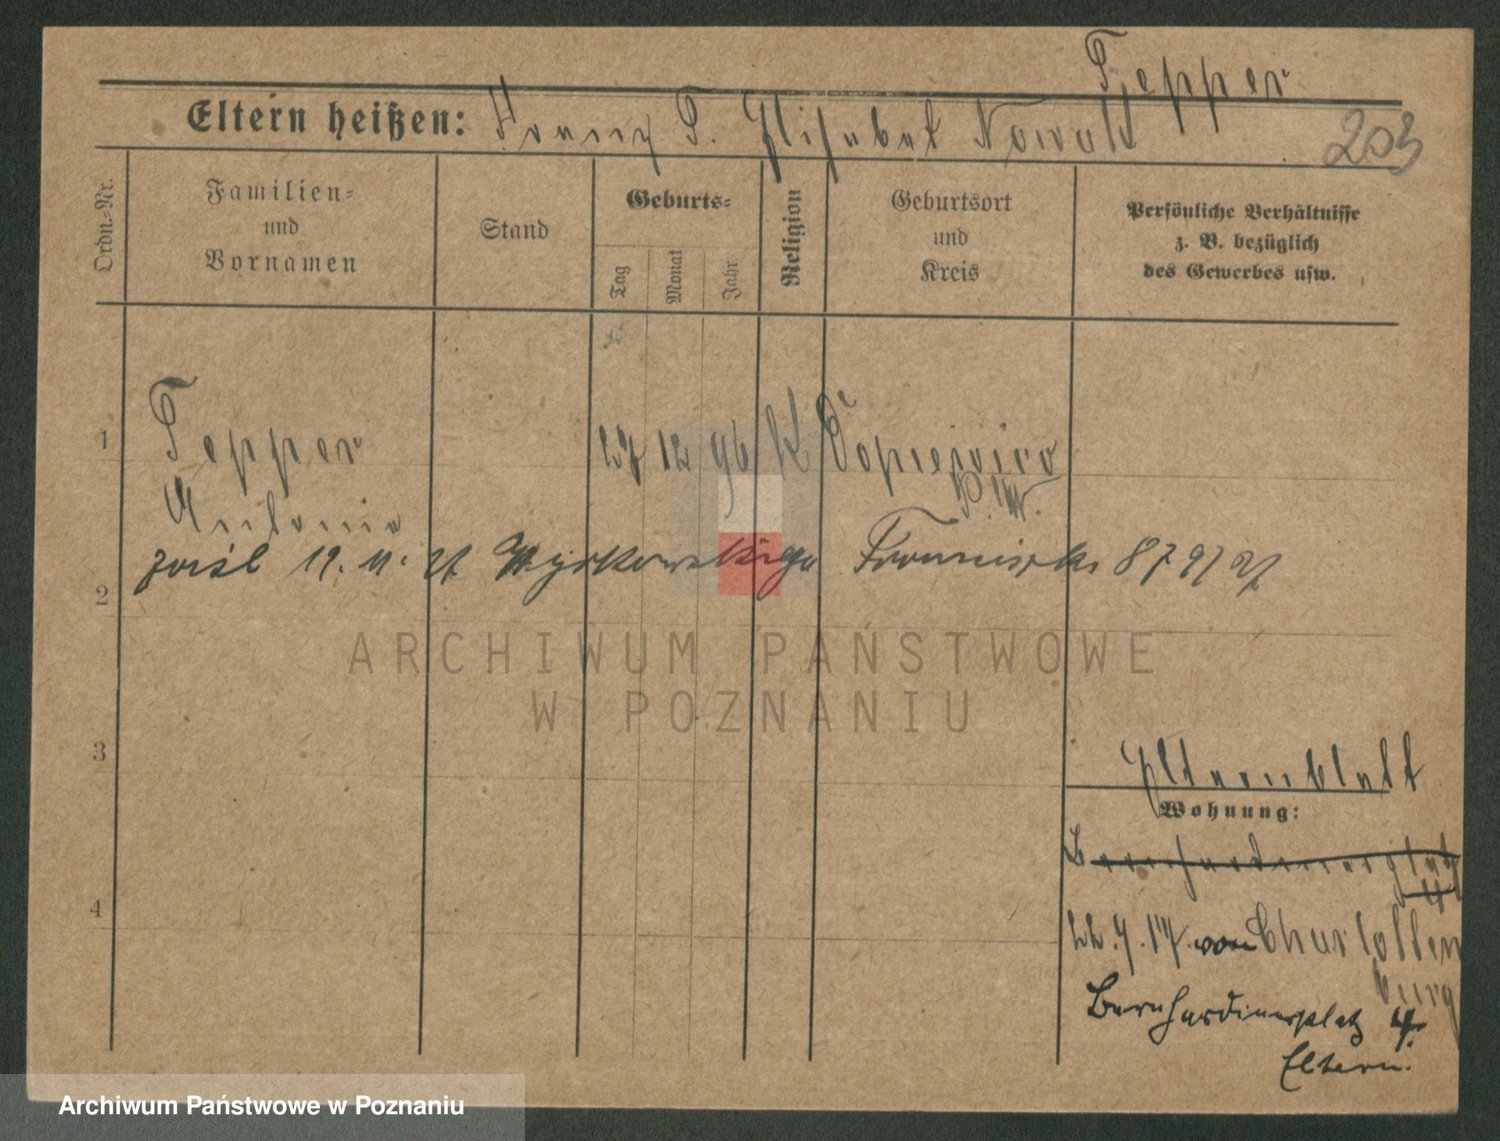 Tepper
Eltern heißen: Franz T. Elisabet Nowak
203
Ordn.=Nr.
Familien=
und
Vornamen
Stand
Geburts=
Tag
Monat
Jahr
Religion
Geburtsort
und
Kreis
Persönliche Verhältnisse
z. B. bezüglich
des Gewerbes usw.
1
Tepper
27 12 96 K Dopiewiec
P. W.
Antonie
zaśl 19. 11. 21 Franciszka 87 9/21
2
ARCHIWUM PAŃSTWOWE
W POZNANIU
3
Elternblatt
Wohnung:
Bernhardinerplatz
4
4
22.7.17. von Charlotten
burg
Bernhardinerplatz 4.
Eltern.
Archiwum Państwowe w Poznaniu